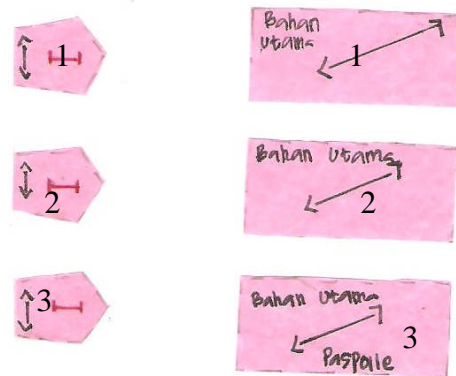 1
Bahan
Utama
1
2
Bahan Utama
2
3
Bahan Utama
3
Paspoile